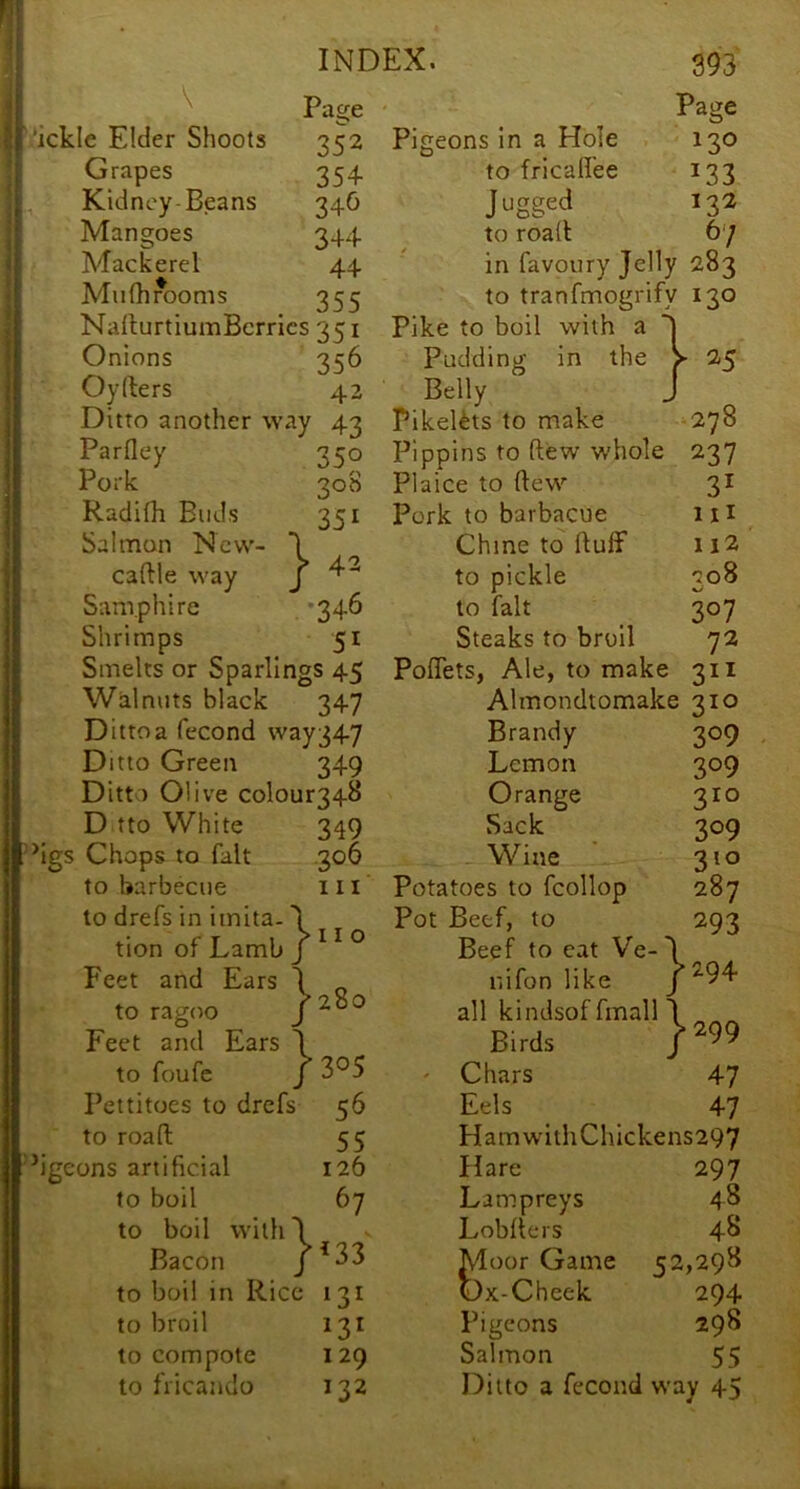 INDEX. 393
Page
'ickle Elder Shoots 352
Grapes 354
Kidney-Beans 346
Mangoes 344
Mackerel 44
Muſhrooms 355
NaſturtiumBerries 351
Onions 356
Oyſters 42
Ditto another way 43
Parſley 350
Pork 308
Radiſh Buds 351
Salmon New-
caſtle way } 42
Samphire 346
Shrimps 51
Smelts or Sparlings 45
Walnuts black 347
Dittoa ſecond way347
Ditto Green 349
Ditto Olive colour348
D tto White 349
Pigs Chops to ſalt 306
to barbecue 111
to dreſs in imita-
tion of Lamb } 110
Feet and Ears
to ragoo } 280
Feet and Ears
to ſouſe } 305
Pettitoes to dreſs 56
to roaſt 55
Pigeons artificial 126
to boil 67
to boil with
Bacon } 133
to boil in Rice 131
to broil 131
to compote 129
to fricando 132
Page
Pigeons in a Hole 130
to fricaſſee 133
Jugged 132
to roaſt 67
in ſavoury Jelly 283
to tranſmogrify 130
Pike to boil with a
Pudding in the } 25
Belly
Pikelets to make 278
Pippins to ſtew whole 237
Plaice to ſtew 31
Pork to barbacue 111
Chine to ſtuff 112
to pickle 308
to ſalt 307
Steaks to broil 72
Poſſets, Ale, to make 311
Almondtomake 310
Brandy 309
Lemon 309
Orange 310
Sack 309
Wine 310
Potatoes to ſcollop 287
Pot Beef, to 293
Beef to eat Ve-
niſon like } 294
all kindsof ſmall
Birds } 299
Chars 47
Eels 47
HamwithChickens297
Hare 297
Lampreys 48
Lobſters 48
Moor Game 52,298
Ox-Cheek 294
Pigeons 298
Salmon 55
Ditto a ſecond way 45